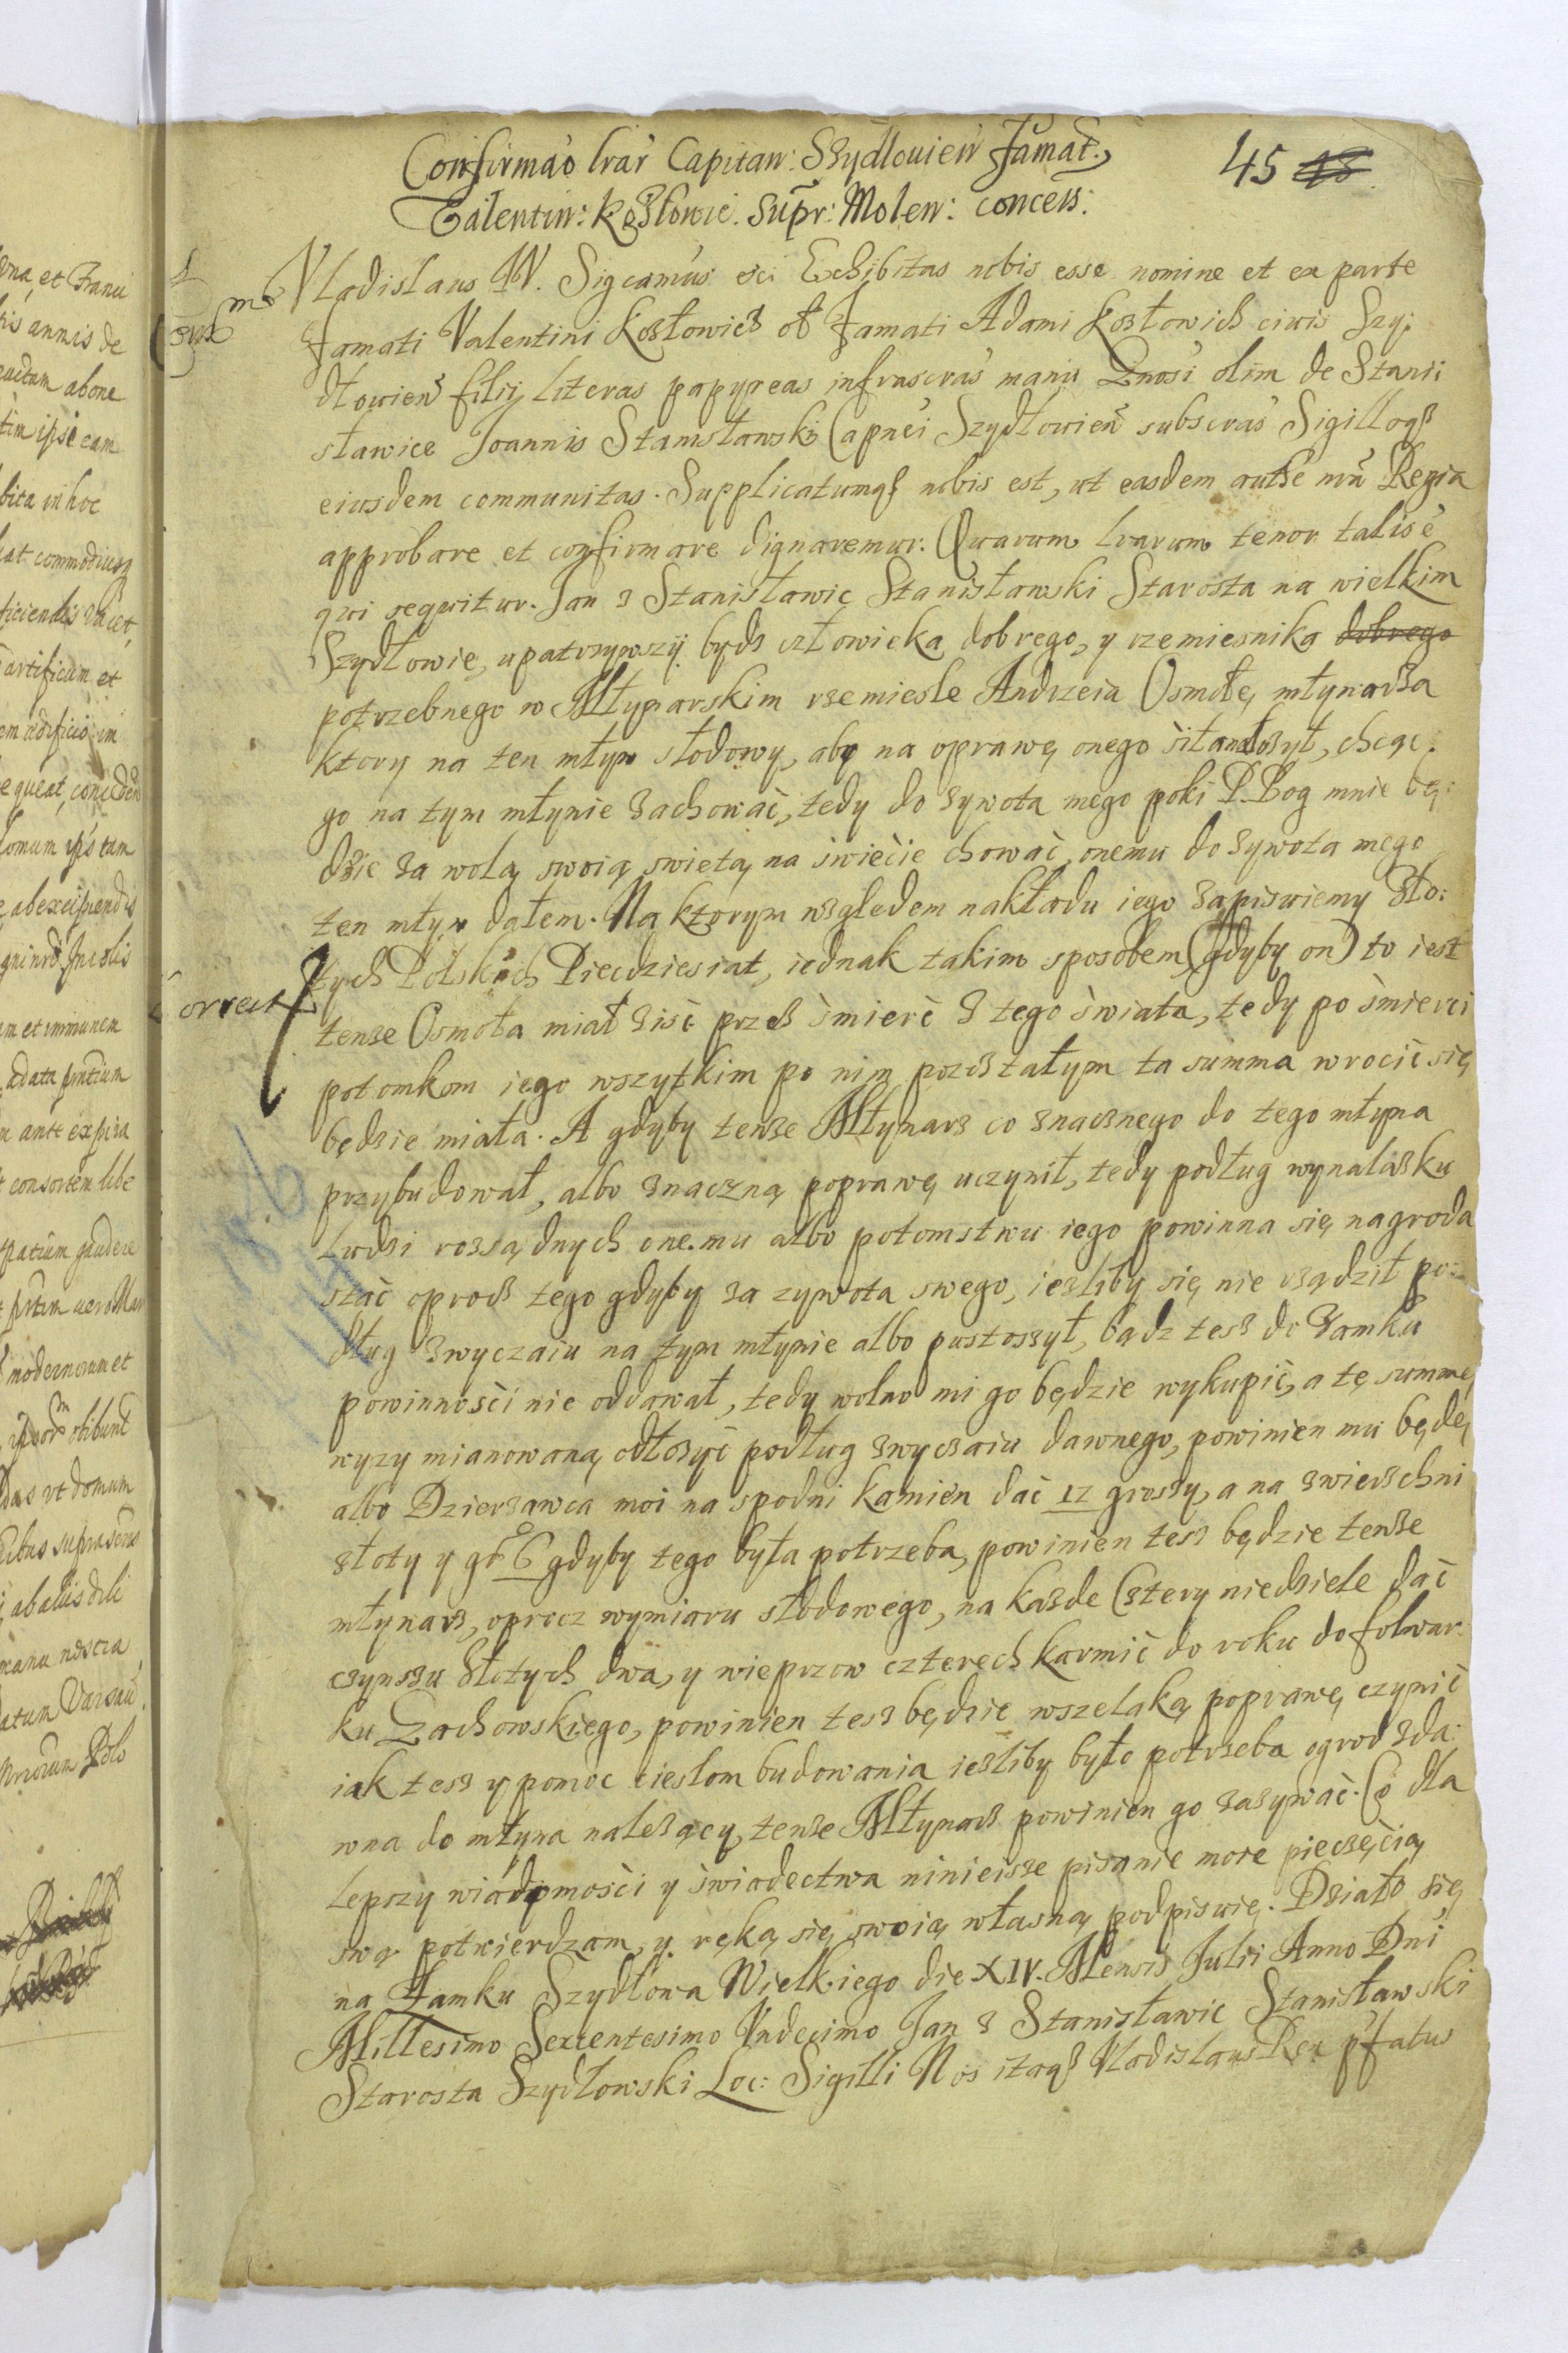 45 48
Confirmao lrar Capitan: Szydlouien Famat.
Valentin: Kozlowic. Supr: Molen: concess:
Vladislaus IV. Sigcamus etc Exhibitas nobis esse nomine et ex parte
Famati Valentini Kozłowicz ol Famati Adami Kozłowich civis Szy:
dłowien filii, literas papyreas infrascras manu Gnosi olim de Stani:
sławice Joannis Stanisławski Capnei Szydłowien subscras Sigilloq3
eiusdem communitas. Supplicatumq3 nobis est, ut easdem authe nra Regia
approbare et confirmare dignaremur. Quarum lrarum tenor talis e
qui sequitur. Jan z Stanisławic Stanisławski Starosta na wielkim
Szydłowie, upatrzywszy bydz człowieka dobrego, y rzemiesnika dobrego
potrzebnego w Młynarskim rzemiesle Andrzeia Osmołę, młynarza
ktory na ten młyn słodowy, aby na oprawę onego siła nałozył, chcąc
go na tym młynie zachowac, tedy do zywota mego poki P. Bog mnie bę:
dzie za wolą swoią swiętą na swiecie chowac, onemu do zywota mego
ten młyn dałem. Na ktorym względem nakładu iego zapisuiemy zło:
tych Polskich Piecdziesiat, iednak takim sposobem (gdyby on) to iest
correct
tenze Osmoła miał zisc przez smierc z tego swiata, tedy po smierci
potomkom iego wszytkim po nim pozostałym ta summa wrocic się
będzie miała. A gdyby tenze Młynarz co znacznego do tego młyna
przybudował, albo znaczną poprawę uczynił, tedy podług wynalazku
ludzi rozsądnych onemu albo potomstwu iego powinna się nagroda
stac oprocz tego gdyby za zywota swego, iezliby się nie rządził po:
dług zwyczaiu na tym młynie albo pustoszył, bądz tesz do Zamku
powinnosci nie oddawał, tedy wolno mi go będzie wykupic, a tę summę
wyzy mianowaną odłozyc podług zwyczaiu dawnego, powinien mu będę
albo Dzierzawca moi na spodni kamien dac 12 groszy, a na zwierzchni
złoty y gr 6 gdyby tego była potrzeba, powinien tesz będzie tenze
młynarz, oprocz wymiaru słodowego, na kazde Cztery niedziele dac
czynszu złotych dwa, y wieprzow czterech karmic do roku do folwar
ku Zachowskiego, powinien tesz będzie wszelaką poprawę czynic
iak tesz y pomoc cieslom budowania iezliby było potrzeba ogrod zda:
wna do młyna nalezący, tenze Młynarz powinien go zazywac. Co dla
lepszy wiadomosci y swiadectwa ninieisze pisanie moie pieczęcią
swą potwierdzam, y ręką się swoią własną podpisuię. Działo się
na Zamku Szydłowa Wielkiego die XIV. Mensis Julii Anno Dni
Millesimo Sexcentesimo Undecimo Jan z Stanisławic Stanisławski
Starosta Szydłowski Loc: Sigilli Nos itaq3 Vladislaus Rex pfatus